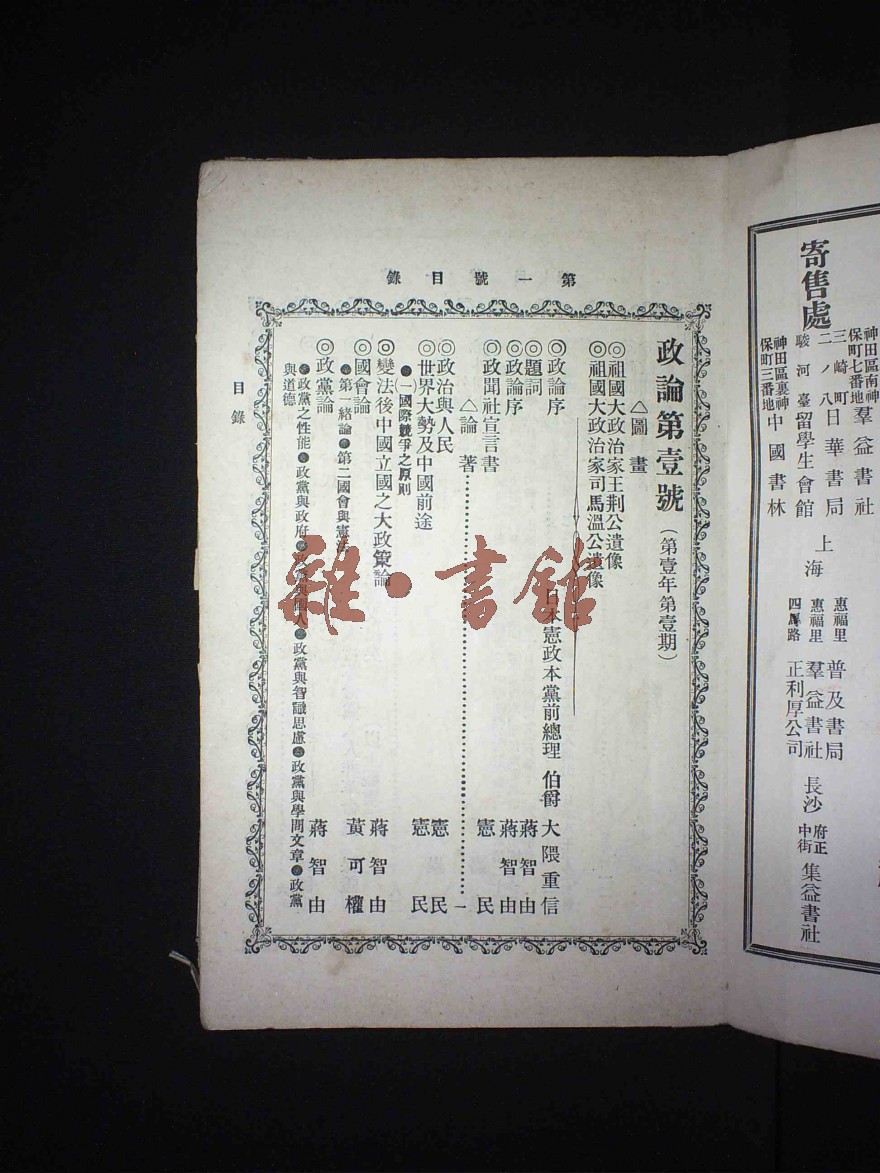 寄售處
神田區南神保町七番地 羣益書社
三崎町二ノ八 日華書局
駿河臺 留學生會館
神田區裏神保町三番地 中國書林
上海
惠福里 普及書局
惠福里 羣益書社
四馬路 正利厚公司
長沙 府正中街 集益書社
第一號目錄
政論第壹號（第壹年第壹期）
△圖畫
◎祖國大政治家王荆公遺像
◎祖國大政治家司馬溫公遺像
◎政論序 日本憲政本黨前總理 伯爵 大隈重信
◎題詞 蔣智由
◎政論序 蔣智由
◎政聞社宣言書 憲民
△論著………一
◎政治與人民 憲民
◎世界大勢及中國前途 憲民
●（一）國際競爭之原則
◎變法後中國立國之大政策論 蔣智由
◎國會論 黃可權
●第一緒論●第二國會與憲法
◎政黨論 蔣智由
●政黨之性能●政黨與政府●政黨與國人●政黨與智識思慮●政黨與學問文章●政黨
與道德
目錄
雜·書館